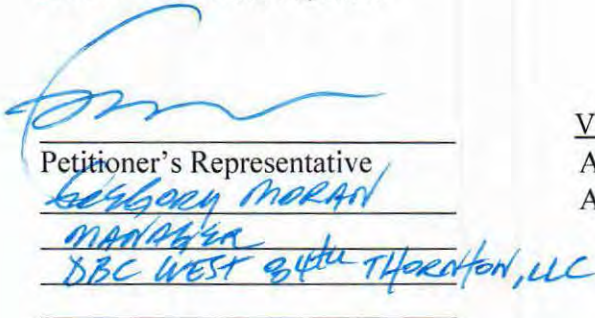 Petitioner's Representative
GREGORY MORAN
MANAGER
DBC WEST 84th THORNTON, LLC
V
A
A